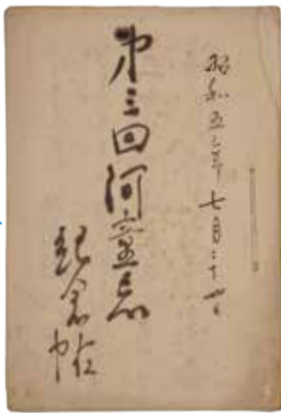 昭和五年七月二十四日
第三回河童忌
紀念帖